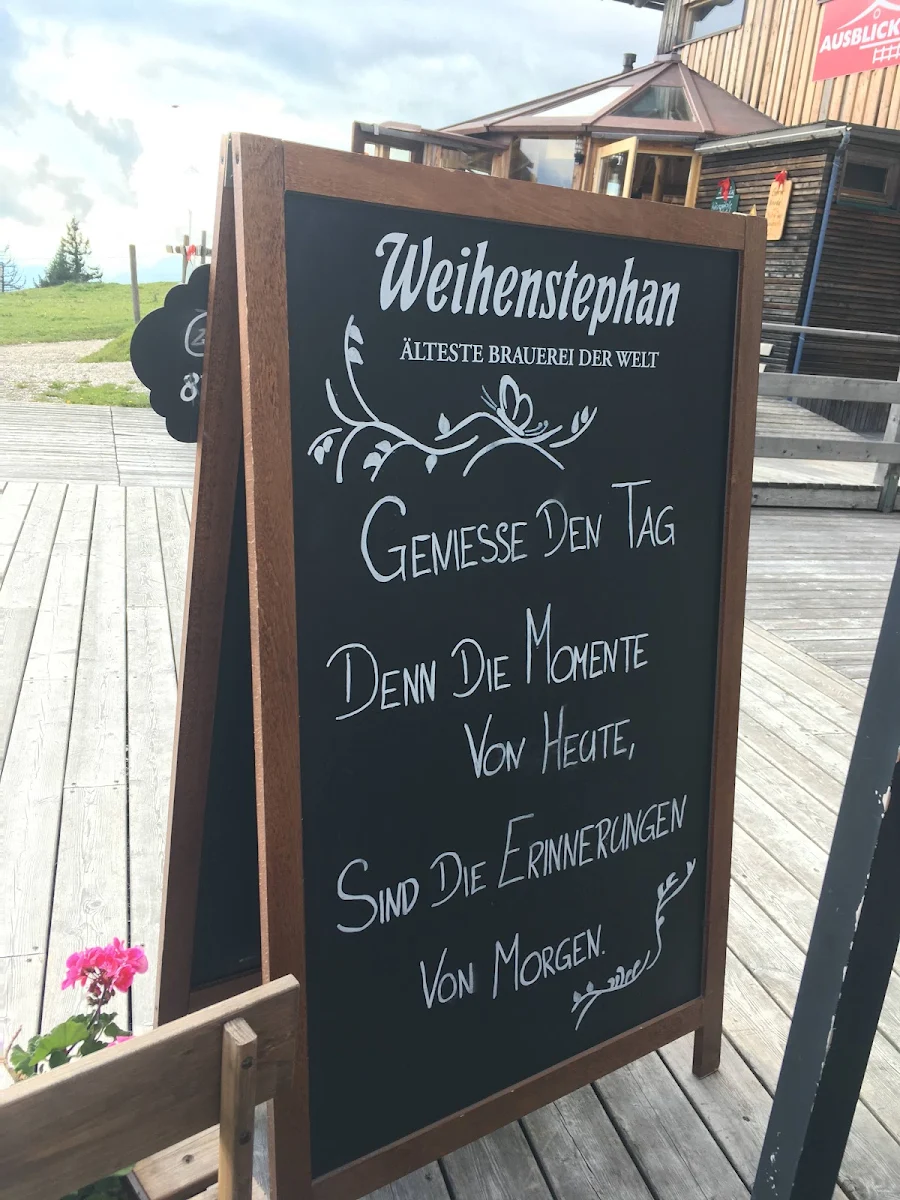 AUSBLICK
Weihenstephan
ÄLTESTE BRAUEREI DER WELT
GENIESSE DEN TAG
DENN DIE MOMENTE
VON HEUTE,
SIND DIE ERINNERUNGEN
VON MORGEN.